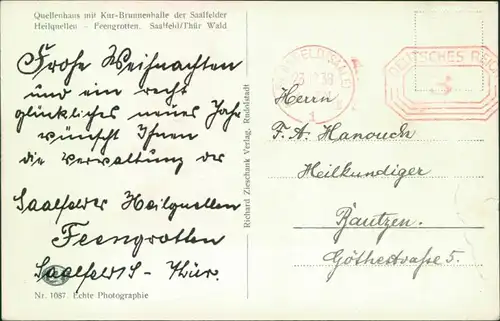 Quellenhaus mit Kur-Brunnenhalle der Saalfelder
Heilquellen – Feengrotten. Saalfeld/Thür Wald
Frohe Weihnachten
und ein recht
glückliches neues Jahr
wünscht Ihnen
die Verwaltung der
Saalfelder Heilquellen
Feengrotten
Saalfeld/S – Thür.
Nr. 1087. Echte Photographie
Richard Zieschank Verlag, Rudolstadt
SAALFELD (SAALE)
1
DEUTSCHES REICH
3
Herrn
F. A. Hanouch
Heilkundiger
Bautzen.
Göthestraße 5.